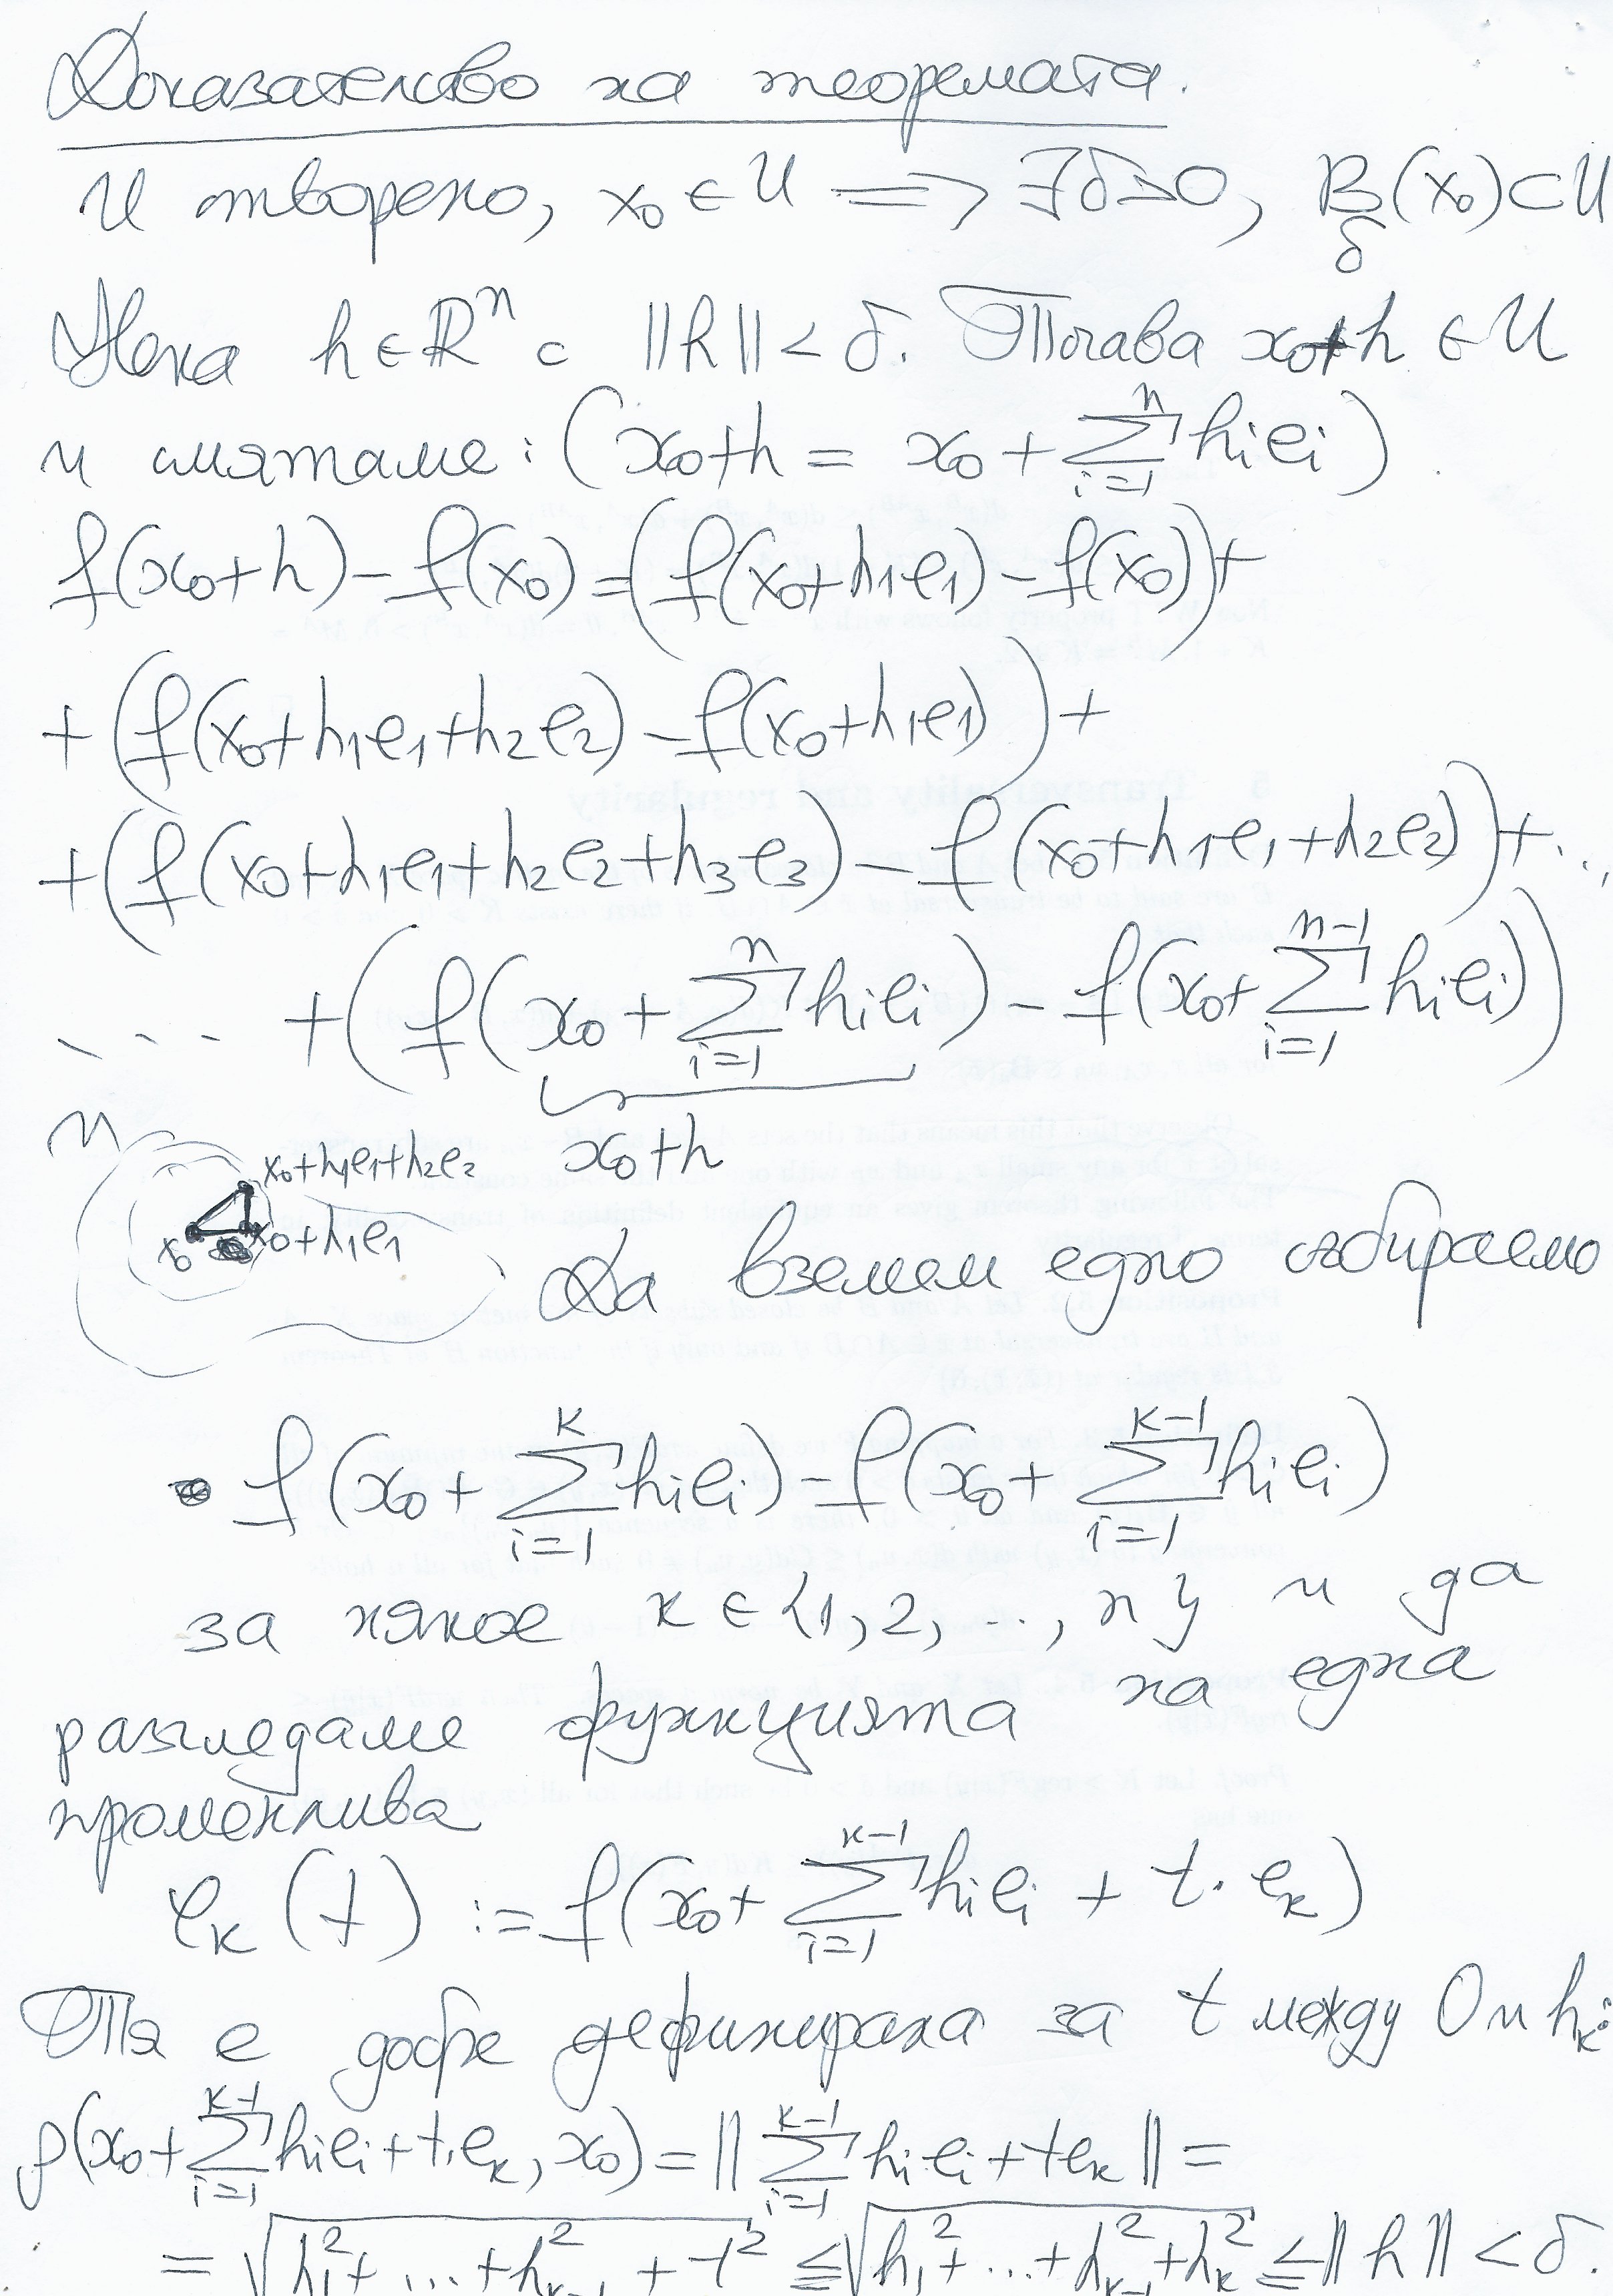 Доказателство на теоремата.
U отворено, x₀ ∈ U ⟹ ∃δ>0, B_δ(x₀) ⊂ U
Нека h ∈ ℝⁿ с ‖h‖ < δ. Тогава x₀+h ∈ U
и смятаме: (x₀+h = x₀ + ∑_{i=1}^{n} hᵢeᵢ).
f(x₀+h) − f(x₀) = (f(x₀+h₁e₁) − f(x₀)) +
+ (f(x₀+h₁e₁+h₂e₂) − f(x₀+h₁e₁)) +
+ (f(x₀+h₁e₁+h₂e₂+h₃e₃) − f(x₀+h₁e₁+h₂e₂)) + ...
... + (f(x₀ + ∑_{i=1}^{n} hᵢeᵢ) − f(x₀+ ∑_{i=1}^{n-1} hᵢeᵢ))
x₀+h
U
x₀+h₁e₁+h₂e₂
x₀
x₀+h₁e₁
Да вземем едно събираемо
f(x₀ + ∑_{i=1}^{k} hᵢeᵢ) − f(x₀ + ∑_{i=1}^{k-1} hᵢeᵢ)
за някое k ∈ {1, 2, ..., n} и да
разгледаме функцията на една
променлива
φ_k(t) := f(x₀+ ∑_{i=1}^{k-1} hᵢeᵢ + t.e_k)
Тя е добре дефинирана за t между 0 и h_k:
ρ(x₀+ ∑_{i=1}^{k-1} hᵢeᵢ + t.e_k, x₀) = ‖ ∑_{i=1}^{k-1} hᵢeᵢ + te_k ‖ =
= √(h₁² + ... + h_{k-1}² + t²) ≤ √(h₁² + ... + h_{k-1}² + h_k²) ≤ ‖h‖ < δ.